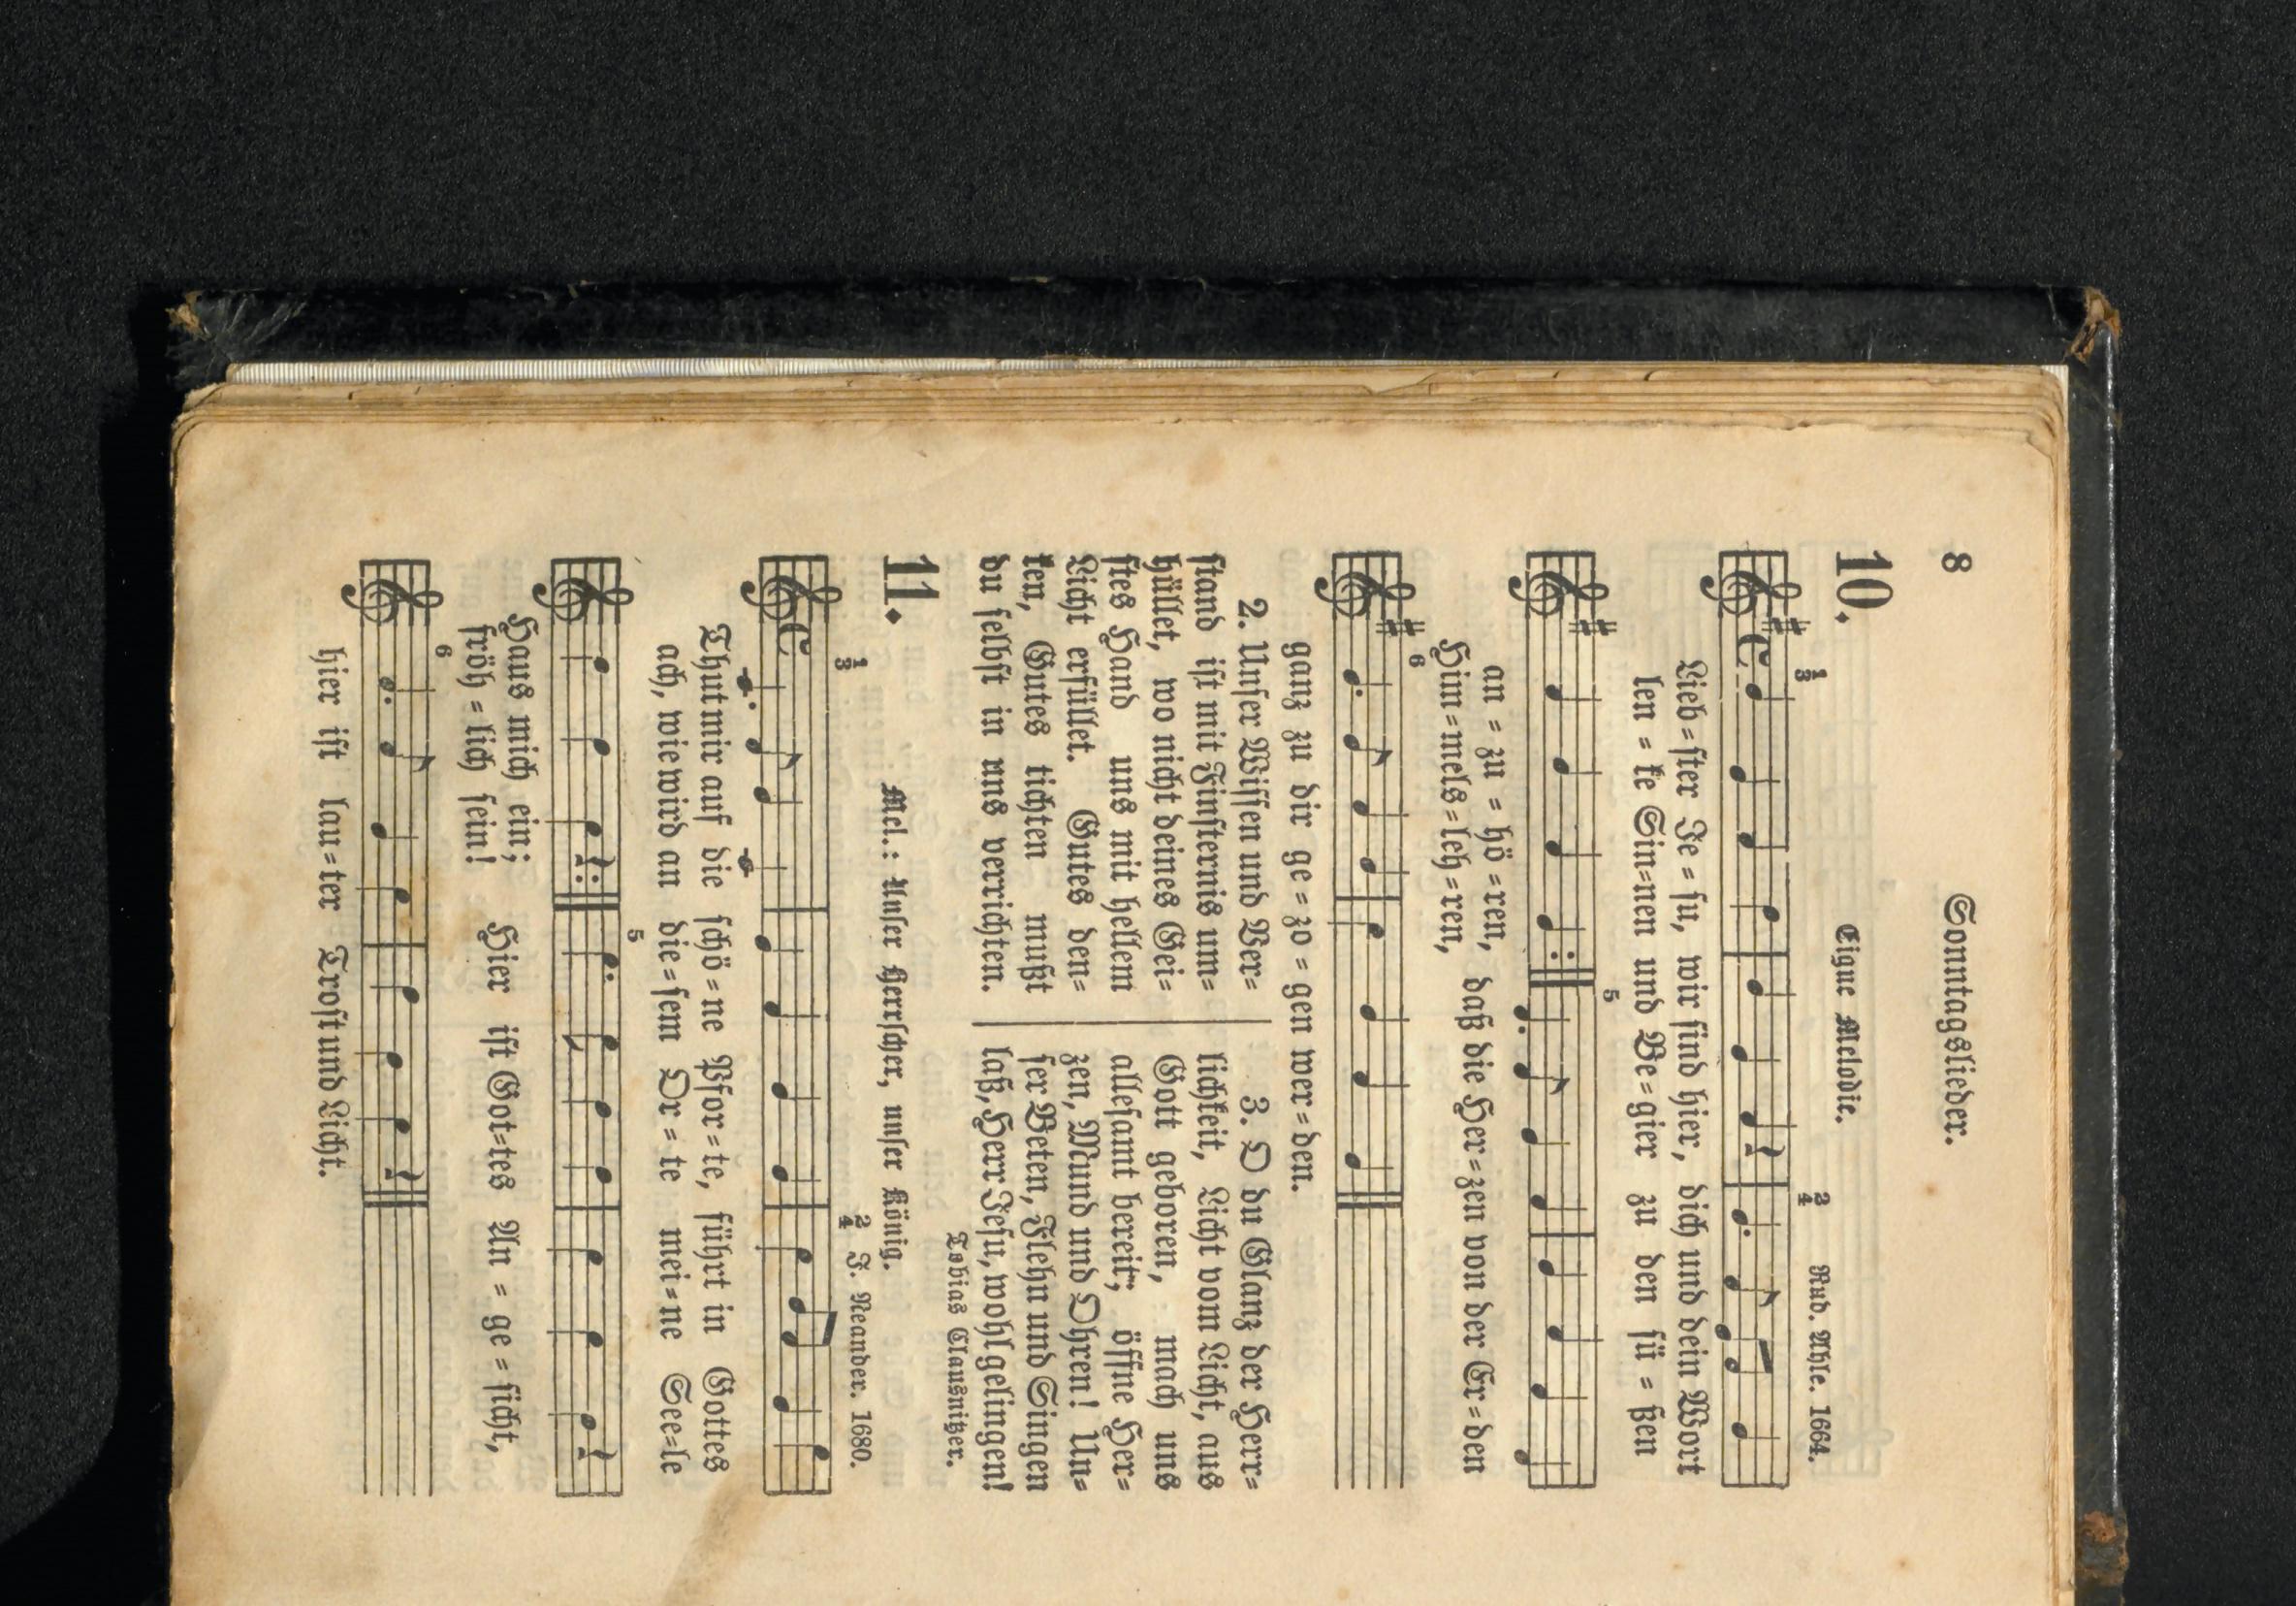 8
Sonntagslieder.
10.
Eigne Melodie.
1/3
2/4
Rud. Ahle. 1664.
Lieb=ster Je = su, wir sind hier, dich und dein Wort
len = ke Sin=nen und Be=gier zu den sü = ßen
5
an = zu = hö =ren,
Him=mels=leh =ren, daß die Her=zen von der Er=den
6
ganz zu dir ge = zo = gen wer=den.
2. Unser Wissen und Ver=
stand ist mit Finsternis um=
hüllet, wo nicht deines Gei=
stes Hand uns mit hellem
Licht erfüllet. Gutes den=
ken, Gutes tichten mußt
du selbst in uns verrichten.
3. O du Glanz der Herr=
lichkeit, Licht vom Licht, aus
Gott geboren, mach uns
allesamt bereit; öffne Her=
zen, Mund und Ohren! Un=
ser Beten, Flehn und Singen
laß, Herr Jesu, wohl gelingen!
Tobias Clausnitzer.
11.
Mel.: Unser Herrscher, unser König.
1/3
2/4 J. Neander. 1680.
Thut mir auf die schö = ne Pfor=te, führt in Gottes
ach, wie wird an die=sem Or = te mei=ne See=le
5
Haus mich ein;
fröh = lich sein! Hier ist Got=tes An = ge = sicht,
6
hier ist lau=ter Trost und Licht.